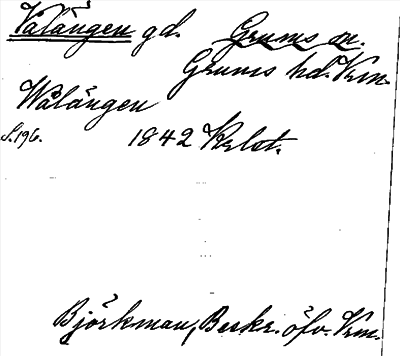 Valången gd. Grums sn.
Grums hd. Vrm.
Wålången
S. 196. 1842 Krlst.
Björkman, Beskr. öfv. Vrm.